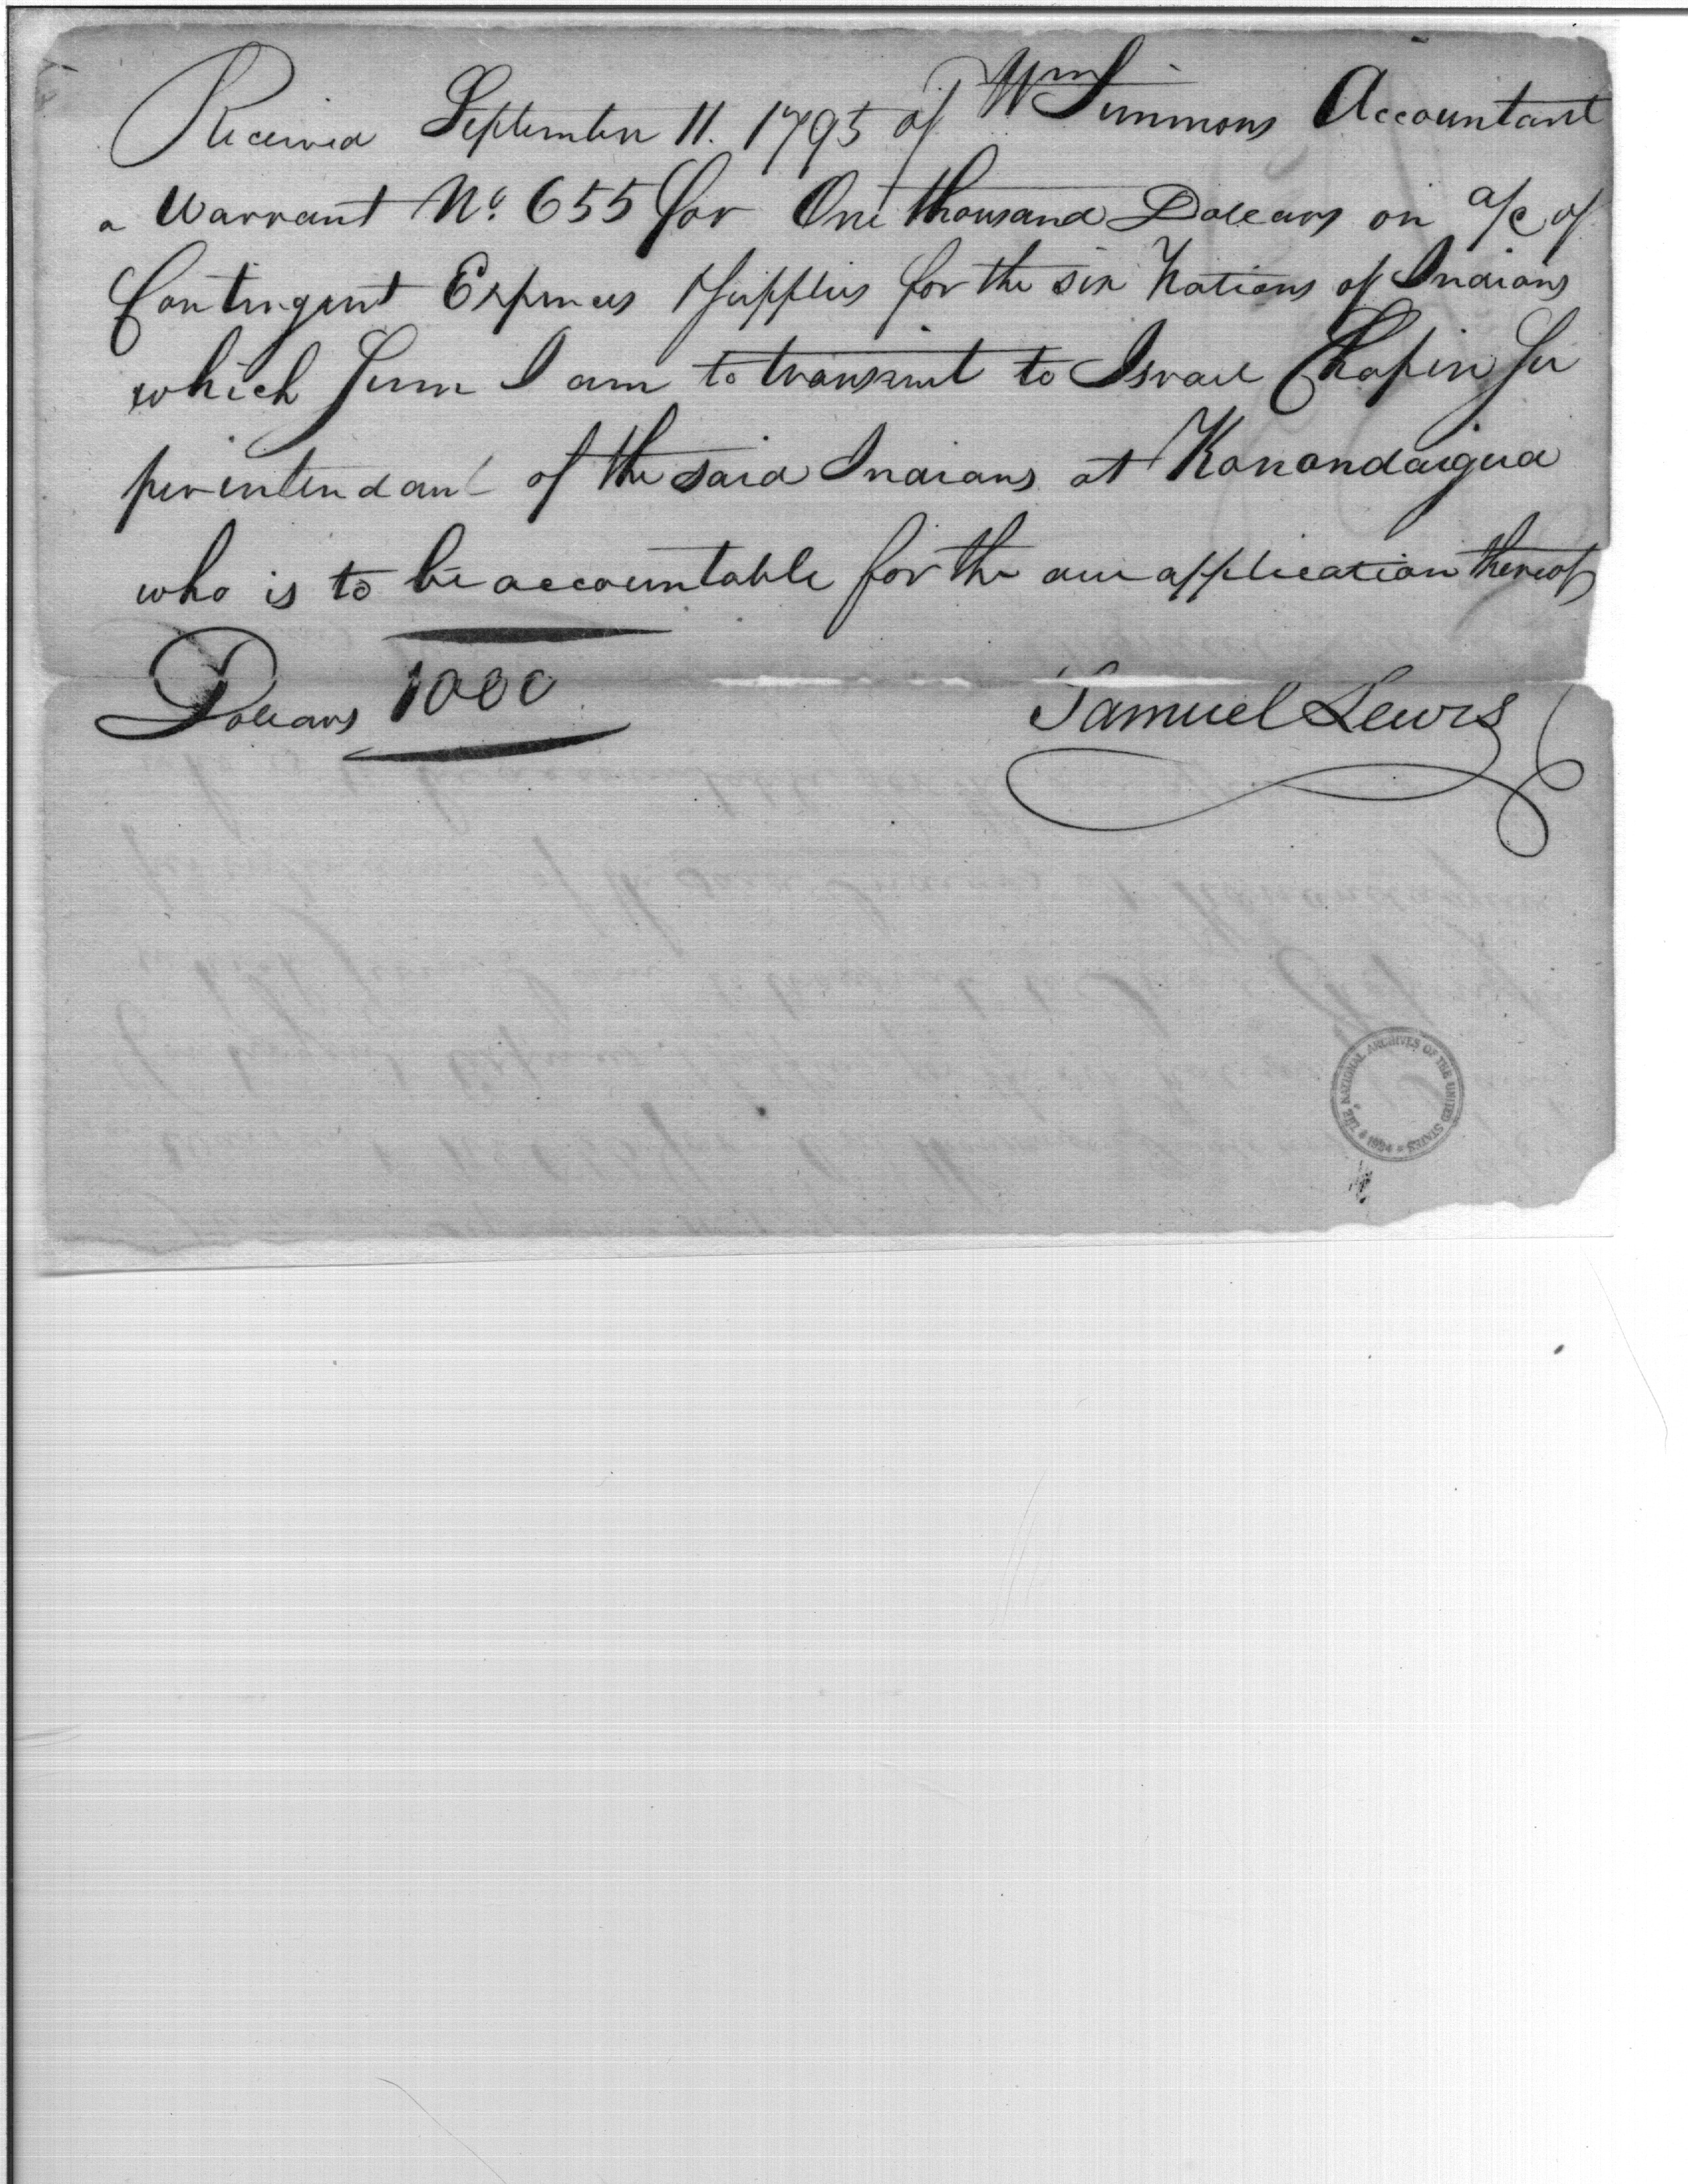 Received September 11. 1795 of Wm Simmons Accountant
a Warrant No. 655 for One thousand Dollars on a/c of
Contingent Expences & Supplies for the six Nations of Indians
which Sum I am to transmit to Israel Chapin Su
perintendant of the said Indians at Konondaigua
who is to be accountable for the due application thereof
Dollars 1000
Samuel Lewis
THE NATIONAL ARCHIVES OF THE UNITED STATES
1934